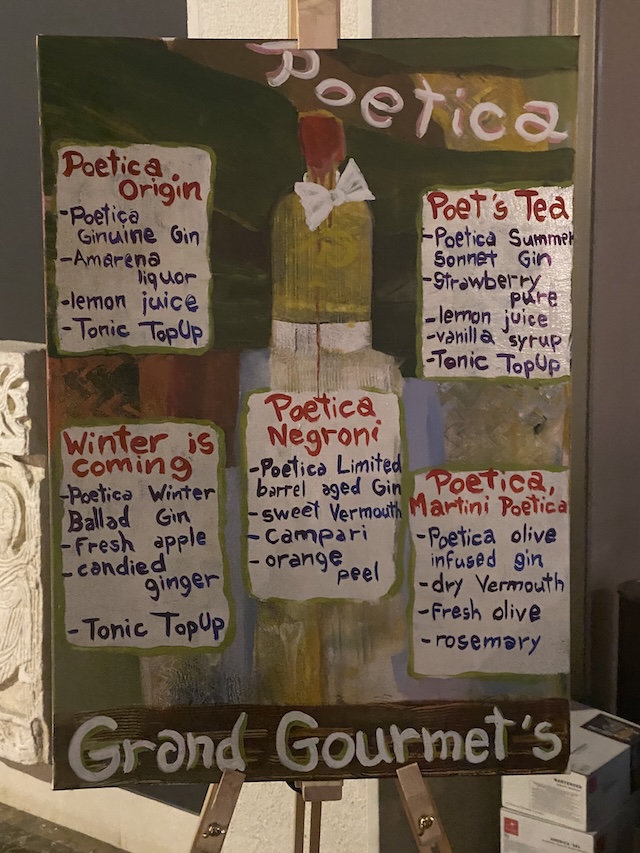 Poetica
Poetica
Origin
-Poetica
Ginuine Gin
-Amarena
liquor
-lemon juice
-Tonic TopUp
Poet's Tea
-Poetica Summer
Sonnet Gin
-Strawberry
pure
-lemon juice
-vanilla syrup
-Tonic TopUp
Winter is
coming
-Poetica Winter
Ballad Gin
-Fresh apple
-candied
ginger
-Tonic TopUp
Poetica
Negroni
-Poetica Limited
barrel aged Gin
-sweet Vermouth
-Campari
-orange
peel
Poetica,
Martini Poetica
-Poetica olive
infused gin
-dry Vermouth
-Fresh olive
-rosemary
Grand Gourmet's